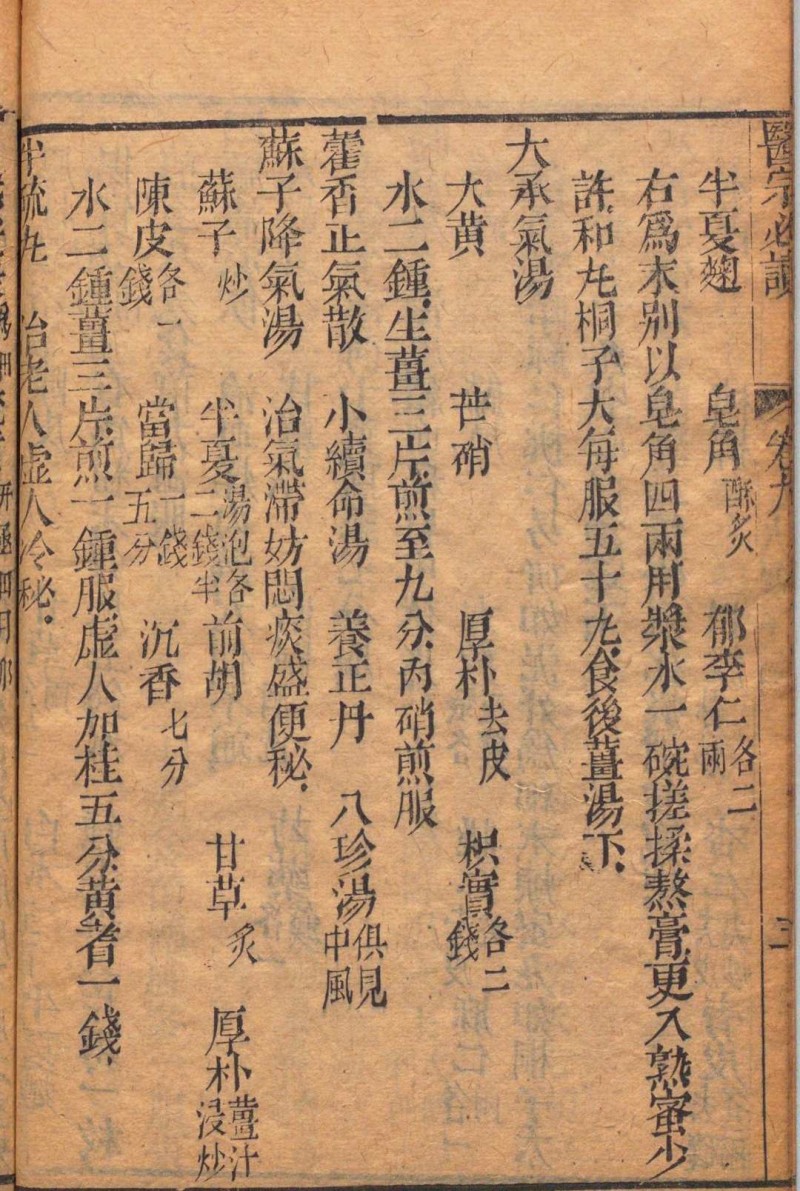 醫宗必讀 卷九 三
半夏麯 皂角酥炙 郁李仁各二兩
右爲末別以皂角四兩用漿水一碗搓揉熬膏更入熟蜜少
許和丸桐子大每服五十丸食後薑湯下
大承氣湯
大黄 芒硝 厚朴去皮 枳實各二錢
水二鍾生薑三片煎至九分內硝煎服
藿香正氣散 小續命湯 養正丹 八珍湯俱見中風
蘇子降氣湯 治氣滯妨悶痰盛便秘
蘇子炒 半夏湯泡各二錢半 前胡 甘草炙 厚朴薑汁浸炒
陳皮各一錢 當歸一錢五分 沉香七分
水二鍾薑三片煎一鍾服虛人加桂五分黄耆一錢
半硫丸 治老人虛人冷秘